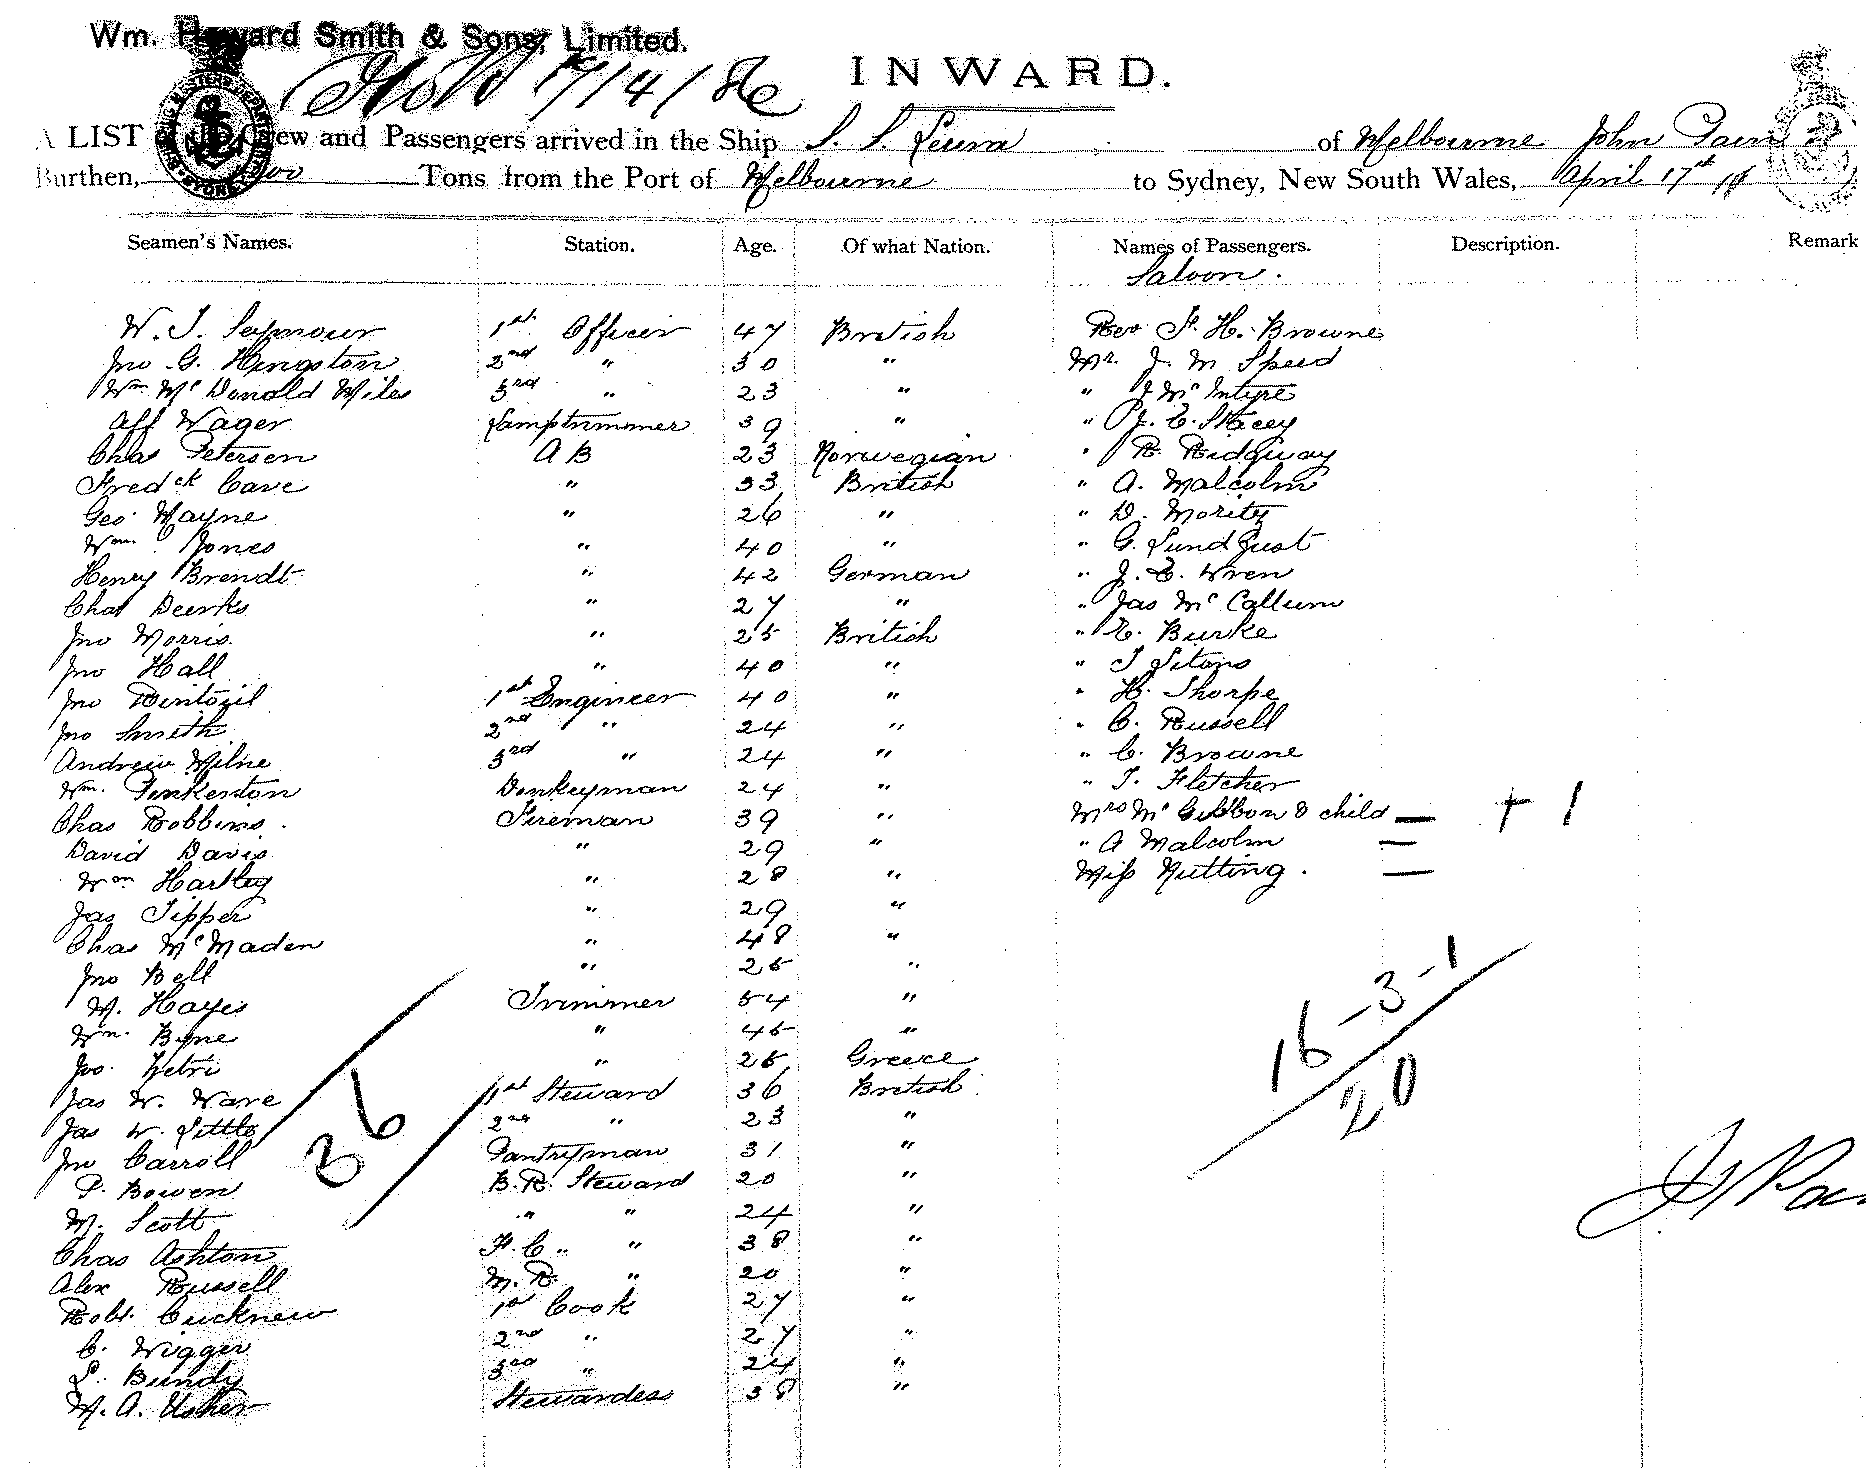 Wm. Howard Smith & Sons, Limited.
17/4/86
INWARD.
A LIST Crew and Passengers arrived in the Ship S. S. Leura of Melbourne John Pain
Burthen, Tons from the Port of Melbourne to Sydney, New South Wales, April 17th 18
Seamen's Names. Station. Age. Of what Nation. Names of Passengers. Description. Remark
Saloon.
W. J. Seymour 1st Officer 47 British Rev F. H. Browne
Jno G. Hingston 2nd " 30 " Mr. J. M Speed
Wm McDonald Miles 3rd " 23 " " J McIntyre
Alf Wager Lamptrimmer 39 " " J. E. Stacey
Chas Petersen A B 23 Norwegian " R Ridgway
Fredck Cave " 33 British " A. Malcolm
Geo Wayne " 26 " " D. Moritz
Wm. Jones " 40 " " G. Lundqust
Henry Brendt " 42 German " J. E. Wren
Chas Deerks " 27 " " Jas McCallum
Jno Morris " 25 British " E. Burke
Jno Hall " 40 " "
Jno 1st Engineer 40 " " H. Thorpe
Jno Smith 2nd " 24 " " C. Russell
Andrew Milne 3rd " 24 " " C. Browne
Wm. Pinkerton Donkeyman 24 " " T. Fletcher
Chas Robbins. Fireman 39 " Mrs McGibbon & child — + 1
David Davis " 29 " " A Malcolm —
Wm Hartley " 28 " Miss Nutting. —
Jas Tipper " 29 "
Chas McMaden " 48 "
Jno Bell " 25 "
M. Hayes Trimmer 54 " 16-3-1
Wm. Byne " 45 "
Jno. Petri " 25 Greece 20
Jas W. Ware 1st Steward 36 British
Jas W. Little 36 2nd " 23 "
Jno Carroll Pantryman 31 "
P. Bowen B.R. Steward 20 "
M. Scott " " 24 "
Chas Ashton F.C. " " 38 "
Alex Russell M.R. " 20 "
Robt. Cucknew 1st Cook 27 "
C. Wigger 2nd " 27 "
L. Bundy 3rd " 24 "
M. A. Usher Stewardess 38 "